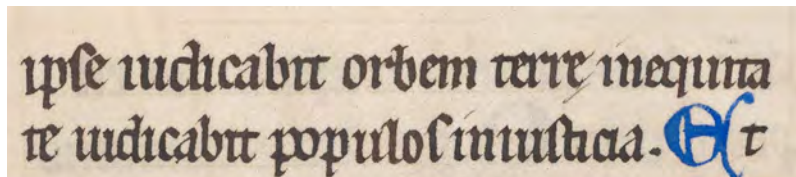 ipse iudicabit orbem terre inequita
te iudicabit populos iniusticia. Et